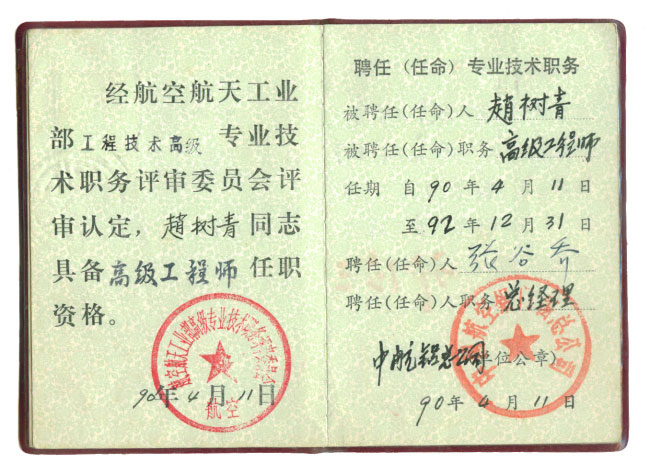 经航空航天工业
部工程技术高级专业技
术职务评审委员会评
审认定，趙树青同志
具备高级工程师任职
资格。
90年4月11日
航空
聘任（任命）专业技术职务
被聘任(任命)人 趙树青
被聘任(任命)职务 高级工程师
任期 自90年4月11日
至92年12月31日
聘任(任命)人 张谷乔
聘任(任命)人职务 总经理
单位公章)
90年4月11日